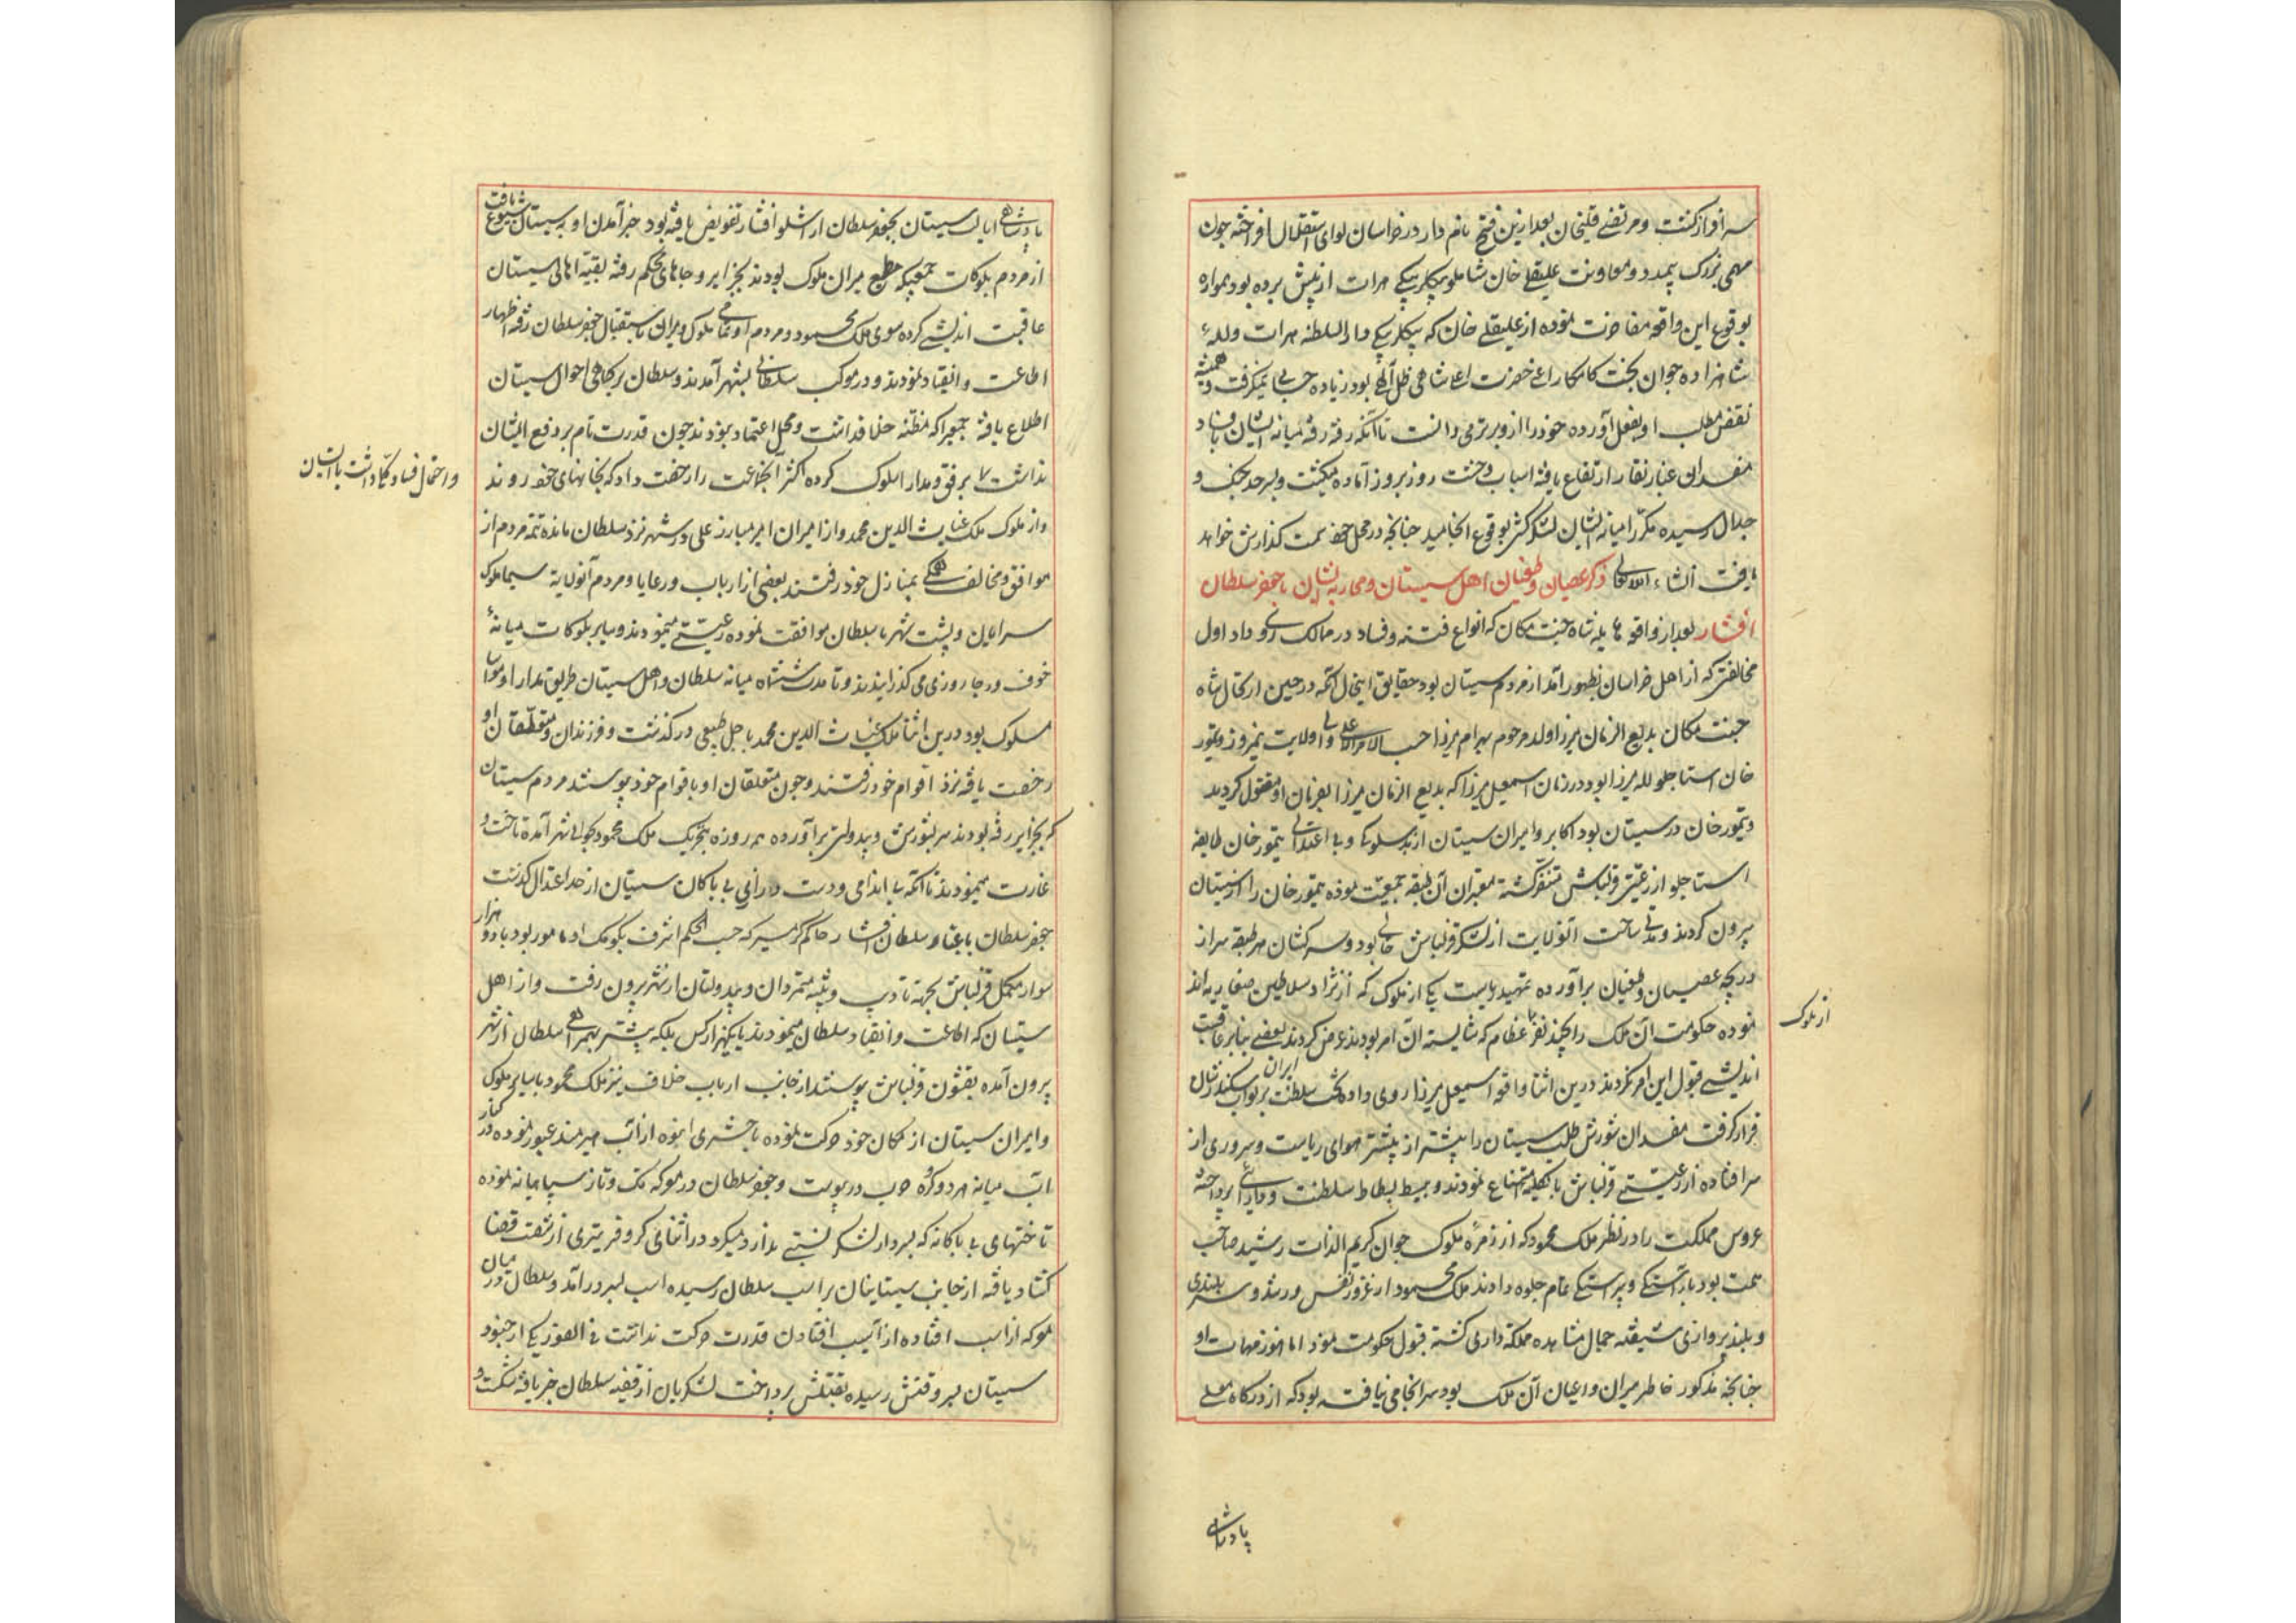 سرافراز گشت و مرتضی قلیخان بعد ازین فتح نامدار در خراسان لوای استقلال افراخته چون
مهمی بزرگ بیمدد و معاونت علیقلی خان شاملو بیکلربیکی هرات از پیش برده بود همواره
بوقوع این واقعه مفاخرت نموده از علیقلی خان که بیکلربیکی دارالسلطنه هرات و لله
شاهزاده جوان بخت کامکار اعنی حضرت اعلی شاهی ظل آلهی بود زیاده حسابی نمیگرفت و همیشه
نقض مطلب او بفعل آورده خود را ازو برتر می دانست تا آنکه رفته رفته میانه ایشان بافساد
مفسدان غبار نقار ارتفاع یافته اسباب وحشت روز بروز آماده میگشت و بسرحد جنک و
جدال رسیده مکرر میانه ایشان لشکرکشی بوقوع انجامید چنانچه در محل خود سمت گذارش خواهد
یافت انشاء الله تعالی ذکر عصیان و طغیان اهل سیستان و محاربه ایشان با جعفر سلطان
افشار بعد از واقعه هایله شاه جنت مکان که انواع فتنه و فساد در ممالک روی داد اول
مخالفتی که از اهل خراسان بظهور آمد از مردم سیستان بود حقایق اینحال آنکه در حین ارتحال شاه
جنت مکان بدیع الزمان میرزا ولد مرحوم بهرام میرزا حسب الامر الاعلی والی ولایت نیمروز و تیمور
خان استاجلو لله میرزا بود در زمان اسمعیل میرزا که بدیع الزمان میرزا بفرمان او مقتول گردید
و تیمور خان در سیستان بود اکابر و امیران سیستان از بدسلوکی و بی اعتدالی تیمور خان طایفه
استاجلو از رعیتی قزلباش متنفر گشته معتبران آن طبقه جمعیت نموده تیمور خان را از سیستان
بیرون کردند و مدتی ساحت آنولایت از لشکر قزلباش خالی بود و سرکشان هر طبقه سر از
دریچه عصیان و طغیان برآورده تمهید ریاست یکی از ملوک که از نژاد سلاطین صفاریه اند
نموده حکومت آن ملک را بچند نفر عظام که شایسته آن امر بودند عرض کردند بعضی بنابر عاقبت
از ملوک
اندیشی قبول این امر نکردند درین اثنا واقعه اسمعیل میرزا روی داد تخت سلطنت ایران بر نواب سکندر شان
قرار گرفت مفسدان شورش طلب سیستان را بیشتر از پیشتر هوای ریاست و سروری از
سر افتاده از رعیتی قزلباش بالکلیه امتناع نمودند و ببسیط بساط سلطنت و دارائی پرداخته
عروس مملکت را در نظر ملک محمود که از زمره ملوک جوان کریم الذات رشید صاحب
همت بود بآراستگی و پیراستگی تمام جلوه دادند ملک محمود از غرور نفس ورزیده و سربلندی
و بلند پروازی شیفته جمال مشاهده مملکه داری گشته قبول حکومت نمود اما هنوز مهمات او
چنانچه مذکور خاطر میران و اعیان آن ملک بود سرانجامی نیافته بود که از درگاه معلی
پادشاهی
پادشاهی ایالت سیستان بجعفر سلطان ارشلو افشار تفویض یافته بود خبر آمدن او بسیستان شیوع یافت
از مردم بلوکات جمعیکه مطیع میران ملوک بودند بجزایر و جاهای محکم رفته بقیه اهالی سیستان
عاقبت اندیشی کرده سوی ملک محمود و مردم او تمامی ملوک و میران باستقبال جعفر سلطان رفته اظهار
اطاعت و انقیاد نمودند و در موکب سلطانی بشهر آمدند و سلطان بر کماهی احوال سیستان
اطلاع یافته جمعی را که مظنه خلاف داشت و محل اعتماد نبودند چون قدرت تام بر دفع ایشان
نداشت برفق و مدارا سلوک کرده اکثر آنجماعت را رخصت داد که بخانهای خود روند
و احتمال فساد کلی داشت با ایشان
و از ملوک ملک غیاث الدین محمد و از امیران امیر مبارز علی در شهر نزد سلطان مانده تتمه مردم از
موافق و مخالف بمنازل خود رفتند بعضی از ارباب و رعایا و مردم آنولایة سیما ملوک
سرابان و پشت شهر با سلطان موافقت نموده رعیتی مینمودند و سایر بلوکات میانه
خوف و رجا روزی می گذرانیدند و تا مدت ششماه میانه سلطان و اهل سیستان طریق مدارا و مواسا
مسلوک بود درین اثنا ملک غیاث الدین محمد باجل طبیعی درگذشت و فرزندان و متعلقان او
رخصت یافته نزد اقوام خود رفتند و چون متعلقان او باقوام خود پیوستند مردم سیستان
که بجزایر رفته بودند سر بشورش و بیدولتی برآورده همه روزه بتحریک ملک محمود بحوالی شهر آمده تاخت و
غارت مینمودند تا آنکه بی اندامی و دست درازی بی باکان سیستان از حد اعتدال گذشت
جعفر سلطان باعتماد سلطان افشار حاکم گرمسیر که حسب الحکم اشرف بکومک او مامور بود با دو هزار
سوار مکمل قزلباش بجهة تادیب و تنبیه متمردان و بیدولتان از شهر بیرون رفت و از اهل
سیستان که اطاعت و انقیاد سلطان مینمودند یکهزار کس بلکه بیشتر بهمراهی سلطان از شهر
بیرون آمده بقشون قزلباش پیوستند از جانب ارباب خلاف نیز ملک محمود با سایر ملوک
و امیران سیستان از مکان خود حرکت نموده با حشری انبوه از آب هیرمند عبور نموده در کنار
آب میانه هر دو گروه حرب در پیوست و جعفر سلطان در معرکه تک و تاز سپاهیانه نموده
تاختهای بی باکانه که بسردار لشکر نسبتی ندارد میکرد در اثنای کر و فر تیری از شصت قضا
گشاد یافته از جانب سیستانیان بر اسب سلطان رسیده اسب بسر درآمد و سلطان در میان
معرکه از اسب افتاده از آسیب افتادن قدرت حرکت نداشت فی الفور یکی از جنود
سیستان بسر وقتش رسیده بقتلش پرداخت لشکریان از قضیه سلطان خبر یافته شکست و